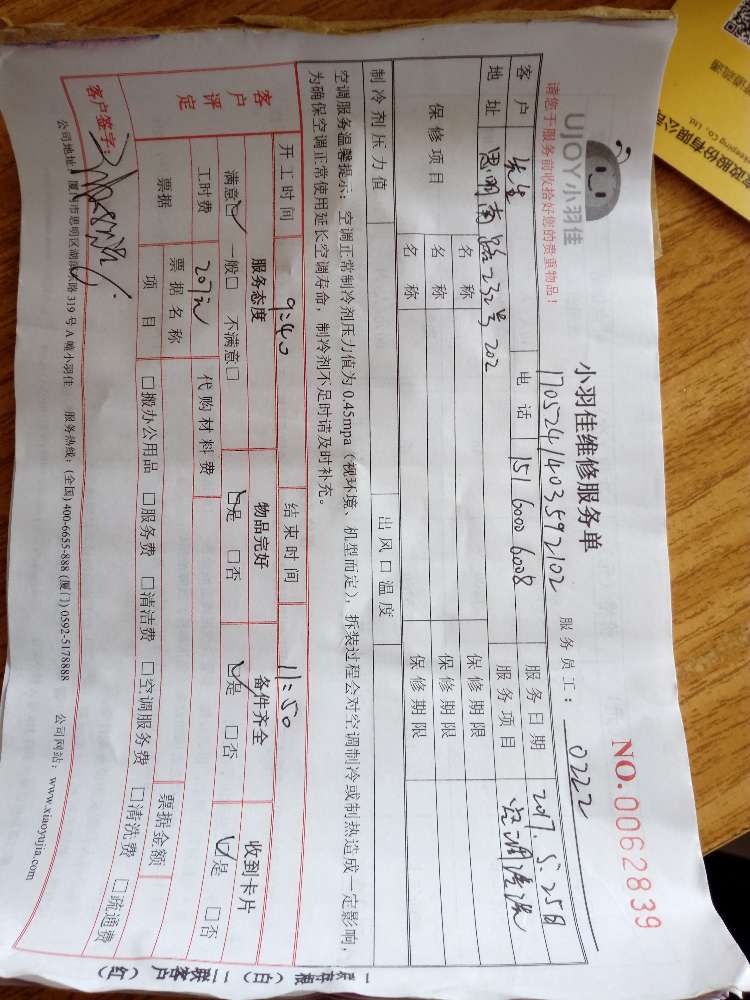 UJOY小羽佳
小羽佳维修服务单
NO.0062839
1705241403592102
服务员工：0222
请您于服务前收拾好您的贵重物品！
客户 先生 电话 151 6000 6008 服务日期 2017.5.25日
地址 思明南路232号202 服务项目 空调清洗
保修项目 名称 保修期限
名称 保修期限
名称 保修期限
制冷剂压力值 出风口温度
空调服务温馨提示：空调正常制冷剂压力值为0.45mpa（视环境、机型而定），拆装过程会对空调制冷或制热造成一定影响，
为确保空调正常使用延长空调寿命，制冷剂不足时请及时补充。
开工时间 9:40 结束时间 11:50
客户评定 服务态度 物品完好 备件齐全 收到卡片
满意☑ 一般□ 不满意□ ☑是 □否 ☑是 □否 ☑是 □否
工时费 207元 代购材料费
票据 票据名称 票据金额
项目 □搬办公用品 □服务费 □清洁费 □空调服务费 □清洗费 □疏通费
客户签字：
公司地址：厦门市思明区湖滨 路319号A幢小羽佳 服务热线：(全国) 400-6655-888 (厦门) 0592-5178888 公司网站：www.xiaoyujia.com
一联存根（白）二联客户（红）
股份有限公司
eeping Co., Ltd.